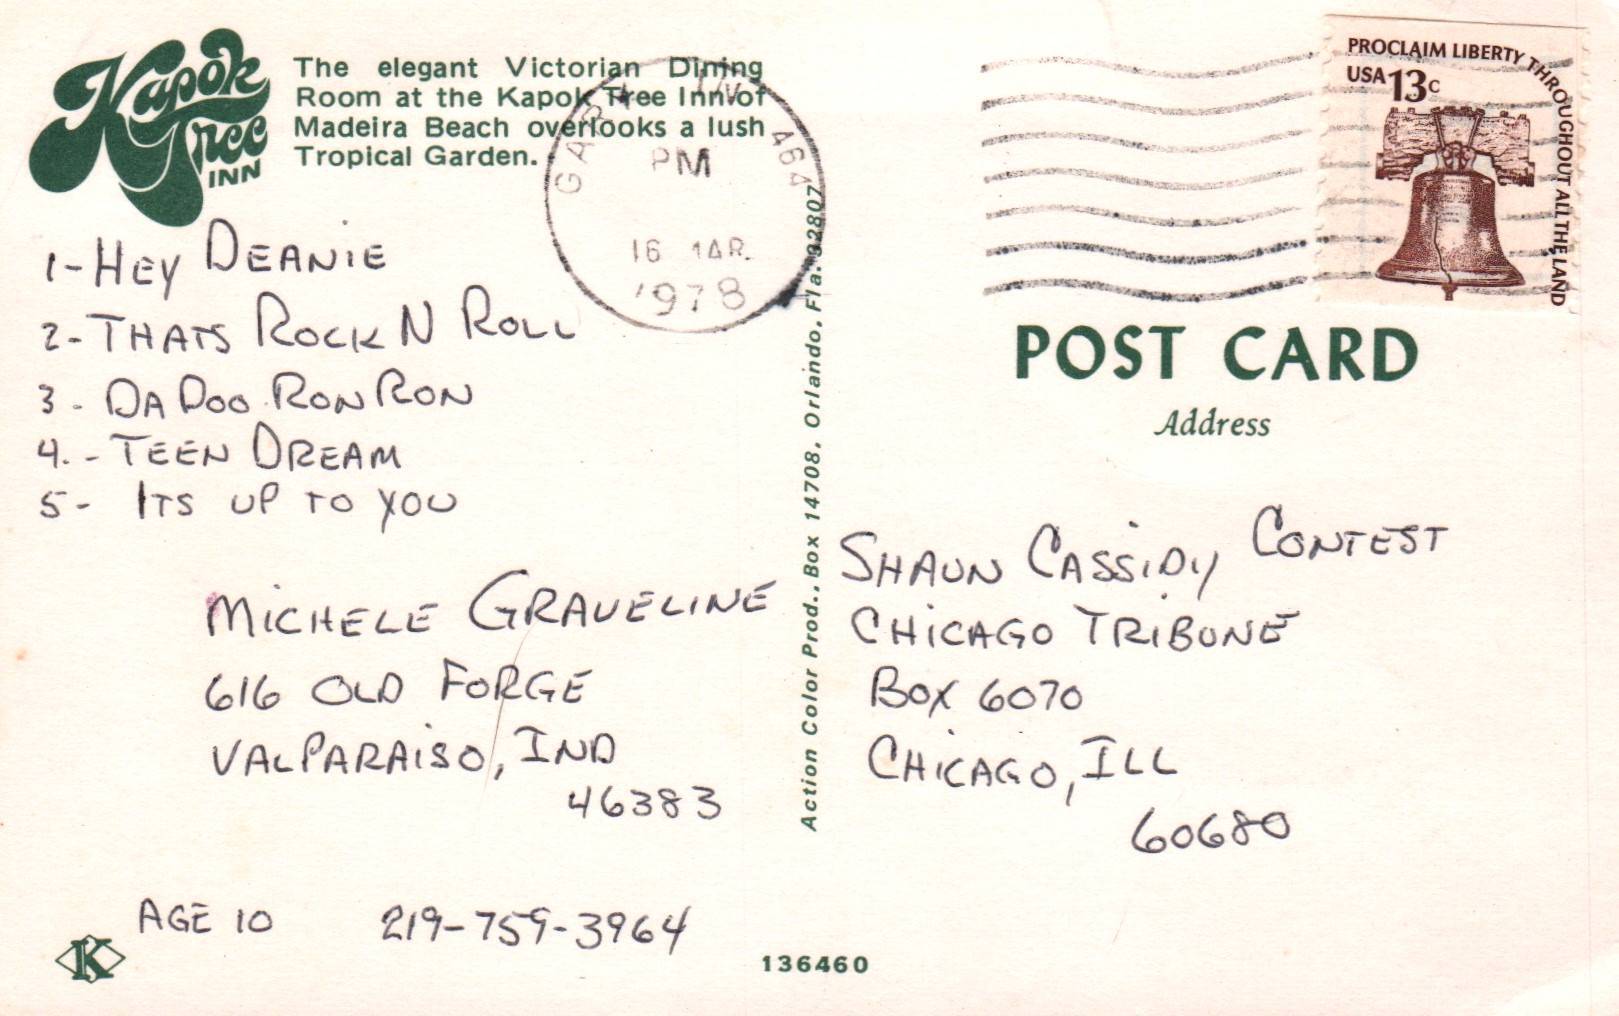 Kapok
Tree
INN
The elegant Victorian Dining
Room at the Kapok Tree Inn of
Madeira Beach overlooks a lush
Tropical Garden.
GARY IN 464
PM
16 MAR.
1978
PROCLAIM LIBERTY THROUGHOUT ALL THE LAND
USA 13c
POST CARD
Address
1-HEY DEANIE
2-THATS ROCK N ROLL
3-DA DOO RON RON
4.-TEEN DREAM
5- ITS UP TO YOU
MICHELE GRAVELINE
616 OLD FORGE
VALPARAISO, IND
46383
AGE 10 219-759-3964
Action Color Prod., Box 14708, Orlando, Fla. 32807
SHAUN CASSIDY CONTEST
CHICAGO TRIBUNE
BOX 6070
CHICAGO, ILL
60680
K
136460